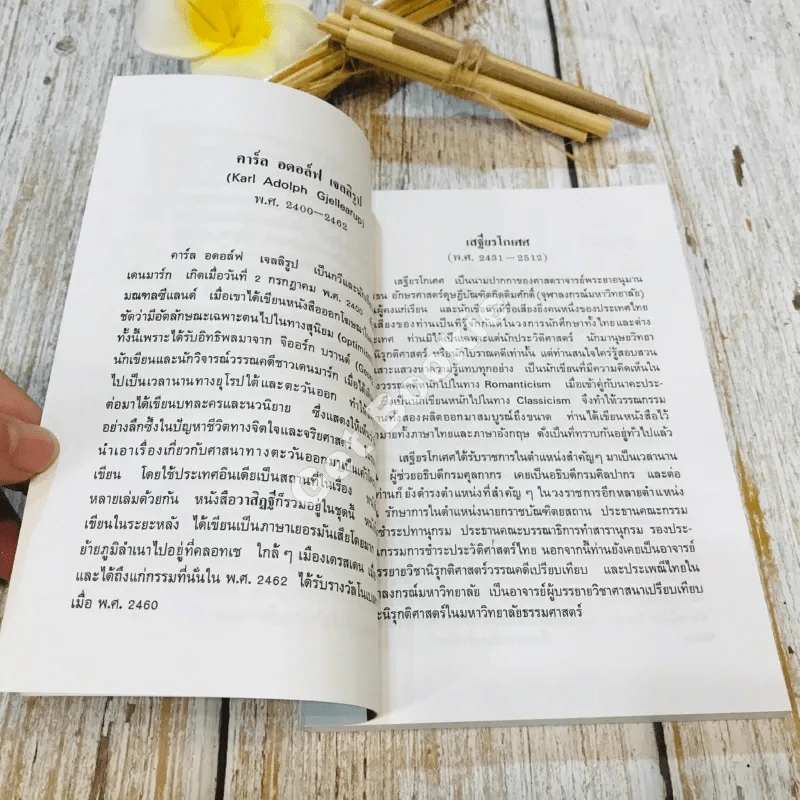 คาร์ล อดอล์ฟ เจลลิรูป
(Karl Adolph Gjellearup)
พ.ศ. 2400—2462
คาร์ล อดอล์ฟ เจลลิรูป เป็นกวีและนัก
เดนมาร์ก เกิดเมื่อวันที่ 2 กรกฎาคม พ.ศ. 2400
มณฑลซีแลนด์ เมื่อเขาได้เขียนหนังสือออกโฆษณา
ชัดว่ามีอัตลักษณะเฉพาะตนไปในทางสุนิยม (optimis
ทั้งนี้เพราะได้รับอิทธิพลมาจาก จิออร์ก บรานด์ (Geo
นักเขียนและนักวิจารณ์วรรณคดีชาวเดนมาร์ก เมื่อได้
ไปเป็นเวลานานทางยุโรปใต้และตะวันออก ทำให้
ต่อมาได้เขียนบทละครและนวนิยาย ซึ่งแสดงให้เห็น
อย่างลึกซึ้งในปัญหาชีวิตทางจิตใจและจริยศาสตร์
นำเอาเรื่องเกี่ยวกับศาสนาทางตะวันออกมาเป็นเค้า
เขียน โดยใช้ประเทศอินเดียเป็นสถานที่ในเรื่อง
หลายเล่มด้วยกัน หนังสือวาสิฏฐีก็รวมอยู่ในชุดนี้
เขียนในระยะหลัง ได้เขียนเป็นภาษาเยอรมันเสียโดยมาก
ย้ายภูมิลำเนาไปอยู่ที่คลอทเช ใกล้ๆ เมืองเดรสเดน
และได้ถึงแก่กรรมที่นั่นใน พ.ศ. 2462 ได้รับรางวัลโนเบล
เมื่อ พ.ศ. 2460
เสฐียรโกเศศ
(พ.ศ. 2431—2512)
เสฐียรโกเศศ เป็นนามปากกาของศาสตราจารย์พระยาอนุมาน
อักษรศาสตร์ดุษฎีบัณฑิตกิตติมศักดิ์ (จุฬาลงกรณ์มหาวิทยาลัย)
ผู้คงแก่เรียน และนักเขียนมีชื่อเสียงยิ่งคนหนึ่งของประเทศไทย
เสียงของท่านเป็นที่รู้จักกันดีในวงการนักศึกษาทั้งไทยและต่าง
ท่านมิได้เป็นเฉพาะแต่นักประวัติศาสตร์ นักมานุษยวิทยา
นิรุกติศาสตร์ หรือโบราณคดีเท่านั้น แต่ท่านสนใจใคร่รู้สอบสวน
และแสวงหาความรู้แทบทุกอย่าง เป็นนักเขียนที่มีความคิดเห็นใน
วรรณคดีหนักไปในทาง Romanticism เมื่อเข้าคู่กับนาคะประ-
ซึ่งเป็นนักเขียนหนักไปในทาง Classicism จึงทำให้วรรณกรรม
สองผลิตออกมาสมบูรณ์ถึงขนาด ท่านได้เขียนหนังสือไว้
มายทั้งภาษาไทยและภาษาอังกฤษ ดั่งเป็นที่ทราบกันอยู่ทั่วไปแล้ว
เสฐียรโกเศศได้รับราชการในตำแหน่งสำคัญๆ มาเป็นเวลานาน
ผู้ช่วยอธิบดีกรมศุลกากร เคยเป็นอธิบดีกรมศิลปากร และต่อ
ท่านก็ยังดำรงตำแหน่งที่สำคัญๆ ในวงราชการอีกหลายตำแหน่ง
รักษาการในตำแหน่งนายกราชบัณฑิตยสถาน ประธานคณะกรรม
ชำระปทานุกรม ประธานคณะบรรณาธิการทำสารานุกรม รองประ-
กรรมการชำระประวัติศาสตร์ไทย นอกจากนี้ท่านยังเคยเป็นอาจารย์
บรรยายวิชานิรุกติศาสตร์วรรณคดีเปรียบเทียบ และประเพณีไทยใน
ลงกรณ์มหาวิทยาลัย เป็นอาจารย์ผู้บรรยายวิชาศาสนาเปรียบเทียบ
นิรุกติศาสตร์ในมหาวิทยาลัยธรรมศาสตร์